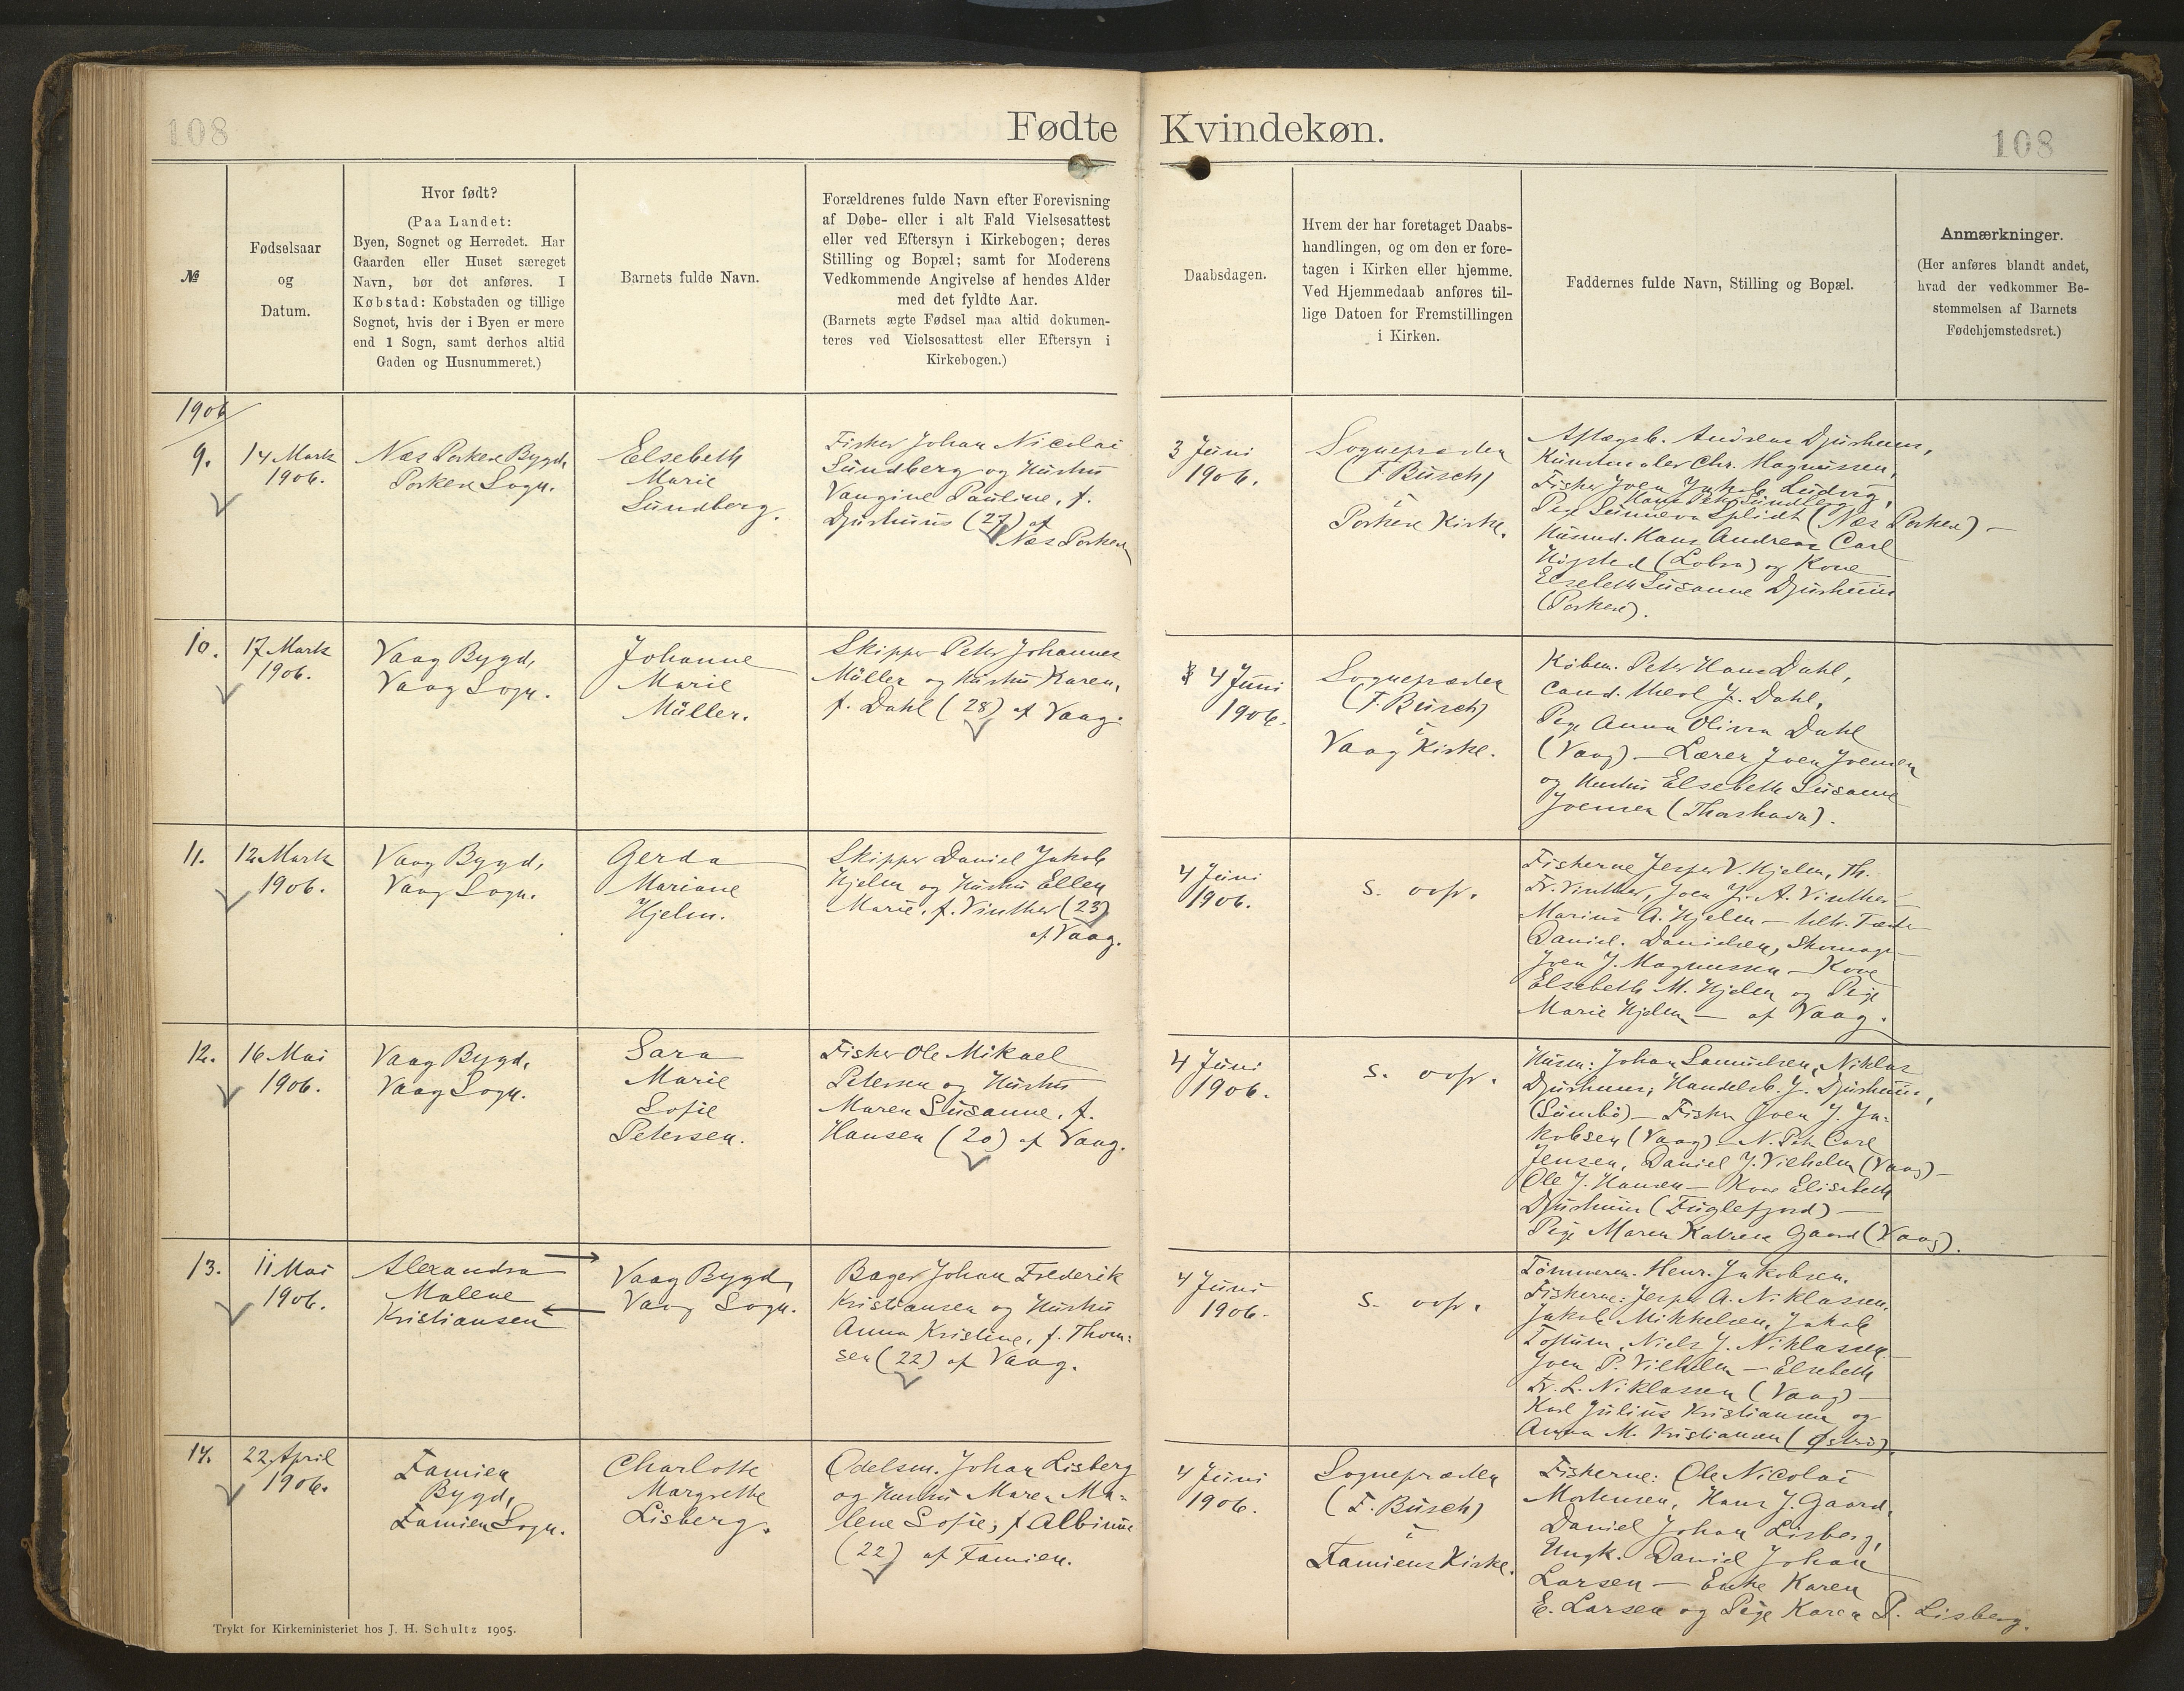 108
Fødte
Kvindekøn.
108
№
Fødselsaar
og
Datum.
Hvor født?
(Paa Landet:
Byen, Sognet og Herredet. Har
Gaarden eller Huset særeget
Navn, bør det anføres. I
Købstad: Købstaden og tillige
Sognet, hvis der i Byen er mere
end 1 Sogn, samt derhos altid
Gaden og Husnummeret.)
Barnets fulde Navn.
Forældrenes fulde Navn efter Forevisning
af Døbe- eller i alt Fald Vielsesattest
eller ved Eftersyn i Kirkebogen; deres
Stilling og Bopæl; samt for Moderens
Vedkommende Angivelse af hendes Alder
med det fyldte Aar.
(Barnets ægte Fødsel maa altid dokumen-
teres ved Vielsesattest eller Eftersyn i
Kirkebogen.)
Daabsdagen.
Hvem der har foretaget Daabs-
handlingen, og om den er fore-
tagen i Kirken eller hjemme.
Ved Hjemmedaab anføres til-
lige Datoen for Fremstillingen
i Kirken.
Faddernes fulde Navn, Stilling og Bopæl.
Anmærkninger.
(Her anføres blandt andet,
hvad der vedkommer Be-
stemmelsen af Barnets
Fødehjemstedsret.)
1906
9.
14 Marts
1906.
Næs Porkere Bygd,
Porkere Sogn.
Elsebeth
Marie
Sundberg.
Fisker Johan Nicolai
Sundberg og Hustru
Vangine Pauline, f.
Djurhuus (27) af
Næs Porkere
3 Juni
1906.
Sognepræsten
(F. Busch)
i
Porkere Kirke.
Aftægtsb. Andreas Djurhuus,
Kunstmaler Chr. Magnussen,
Fisker Joen Jakob Ludvig,
Hans Peter Sundberg
Pige Sunneva Splidt (Næs Porkere) –
Husmd. Hans Andreas Carl
Højsted (Lobra) og Kone
Elsebeth Susanne Djurhuus
(Porkere).
10.
17 Marts
1906.
Vaag Bygd,
Vaag Sogn.
Johanne
Marie
Müller.
Skipper Peter Johannes
Müller og Hustru Karen,
f. Dahl (28) af Vaag.
4 Juni
1906.
Sognepræsten
(F. Busch)
i
Vaag Kirke.
Købm. Peter Hans Dahl,
Cand. theol J. Dahl,
Pige Anna Olivia Dahl
(Vaag) – Lærer Joen Joensen
og Hustru Elsebeth Susanne
Joensen (Thorshavn).
11.
12 Marts
1906.
Vaag Bygd,
Vaag Sogn.
Gerda
Mariane
Hjelm.
Skipper Daniel Jakob
Hjelm og Hustru Ellen
Marie, f. Vinther (23)
af Vaag.
4 Juni
1906.
s. ovfr.
Fiskerne Jesper V. Hjelm, Th.
Fr. Vinther, Joen Jr. A. Vinther –
Marius A. Hjelm –
Daniel. Danielsen, Skomager
Joen J. Magnussen – Kone
Elsebeth M. Hjelm og Pige
Marie Hjelm – af Vaag.
12.
16 Mai
1906.
Vaag Bygd,
Vaag Sogn.
Sara
Marie
Sofie
Petersen.
Fisker Ole Mikael
Petersen og Hustru
Maren Susanne, f.
Hansen (20) af Vaag.
4 Juni
1906.
s. ovfr.
Husm: Johan Samuelsen, Niklas
Djurhuus, Handelsb. J. Djurhuus,
(Sumbø) – Fisker Joen J. Ja-
kobsen (Vaag) – N. Peter Carl
Jensen, Daniel J. Vilhelm (Vaag) –
Ole J. Hansen – Kone Elisabeth
Djurhuus (Fuglefjord) –
Pige Maren Katrine Gaard (Vaag).
13.
11 Mai
1906.
Alexandra
Malene
Kristiansen
Vaag Bygd,
Vaag Sogn.
Bager Johan Frederik
Kristiansen og Hustru
Anna Kristine, f. Thom-
sen (22) af Vaag.
4 Juni
1906.
s. ovfr.
Tømmerm. Henr. Jakobsen.
Fiskerne: Jesper A. Niklassen,
Jakob Mikkelsen, Jakob
Toftum, Niels J. Niklassen
Joen P. Vilhelm – Elsebeth
Fr. L. Niklassen (Vaag) –
Karl Julius Kristiansen og
Anna M. Kristiansen (Østrø).
14.
22 April
1906.
Famien
Bygd,
Famien Sogn.
Charlotte
Margrethe
Lisberg.
Odelsm. Johan Lisberg
og Hustru Maren Ma-
lene Sofie, f Albinus
(22) af Famien.
4 Juni
1906.
Sognepræsten
(F. Busch)
i
Famiens Kirke.
Fiskerne: Ole Nicolai
Mortensen, Hans J. Gaard,
Daniel Johan Lisberg,
Ungk. Daniel Johan
Larsen – Enke Karen
E. Larsen og Pige Karen P. Lisberg.
Trykt for Kirkeministeriet hos J. H. Schultz 1905.